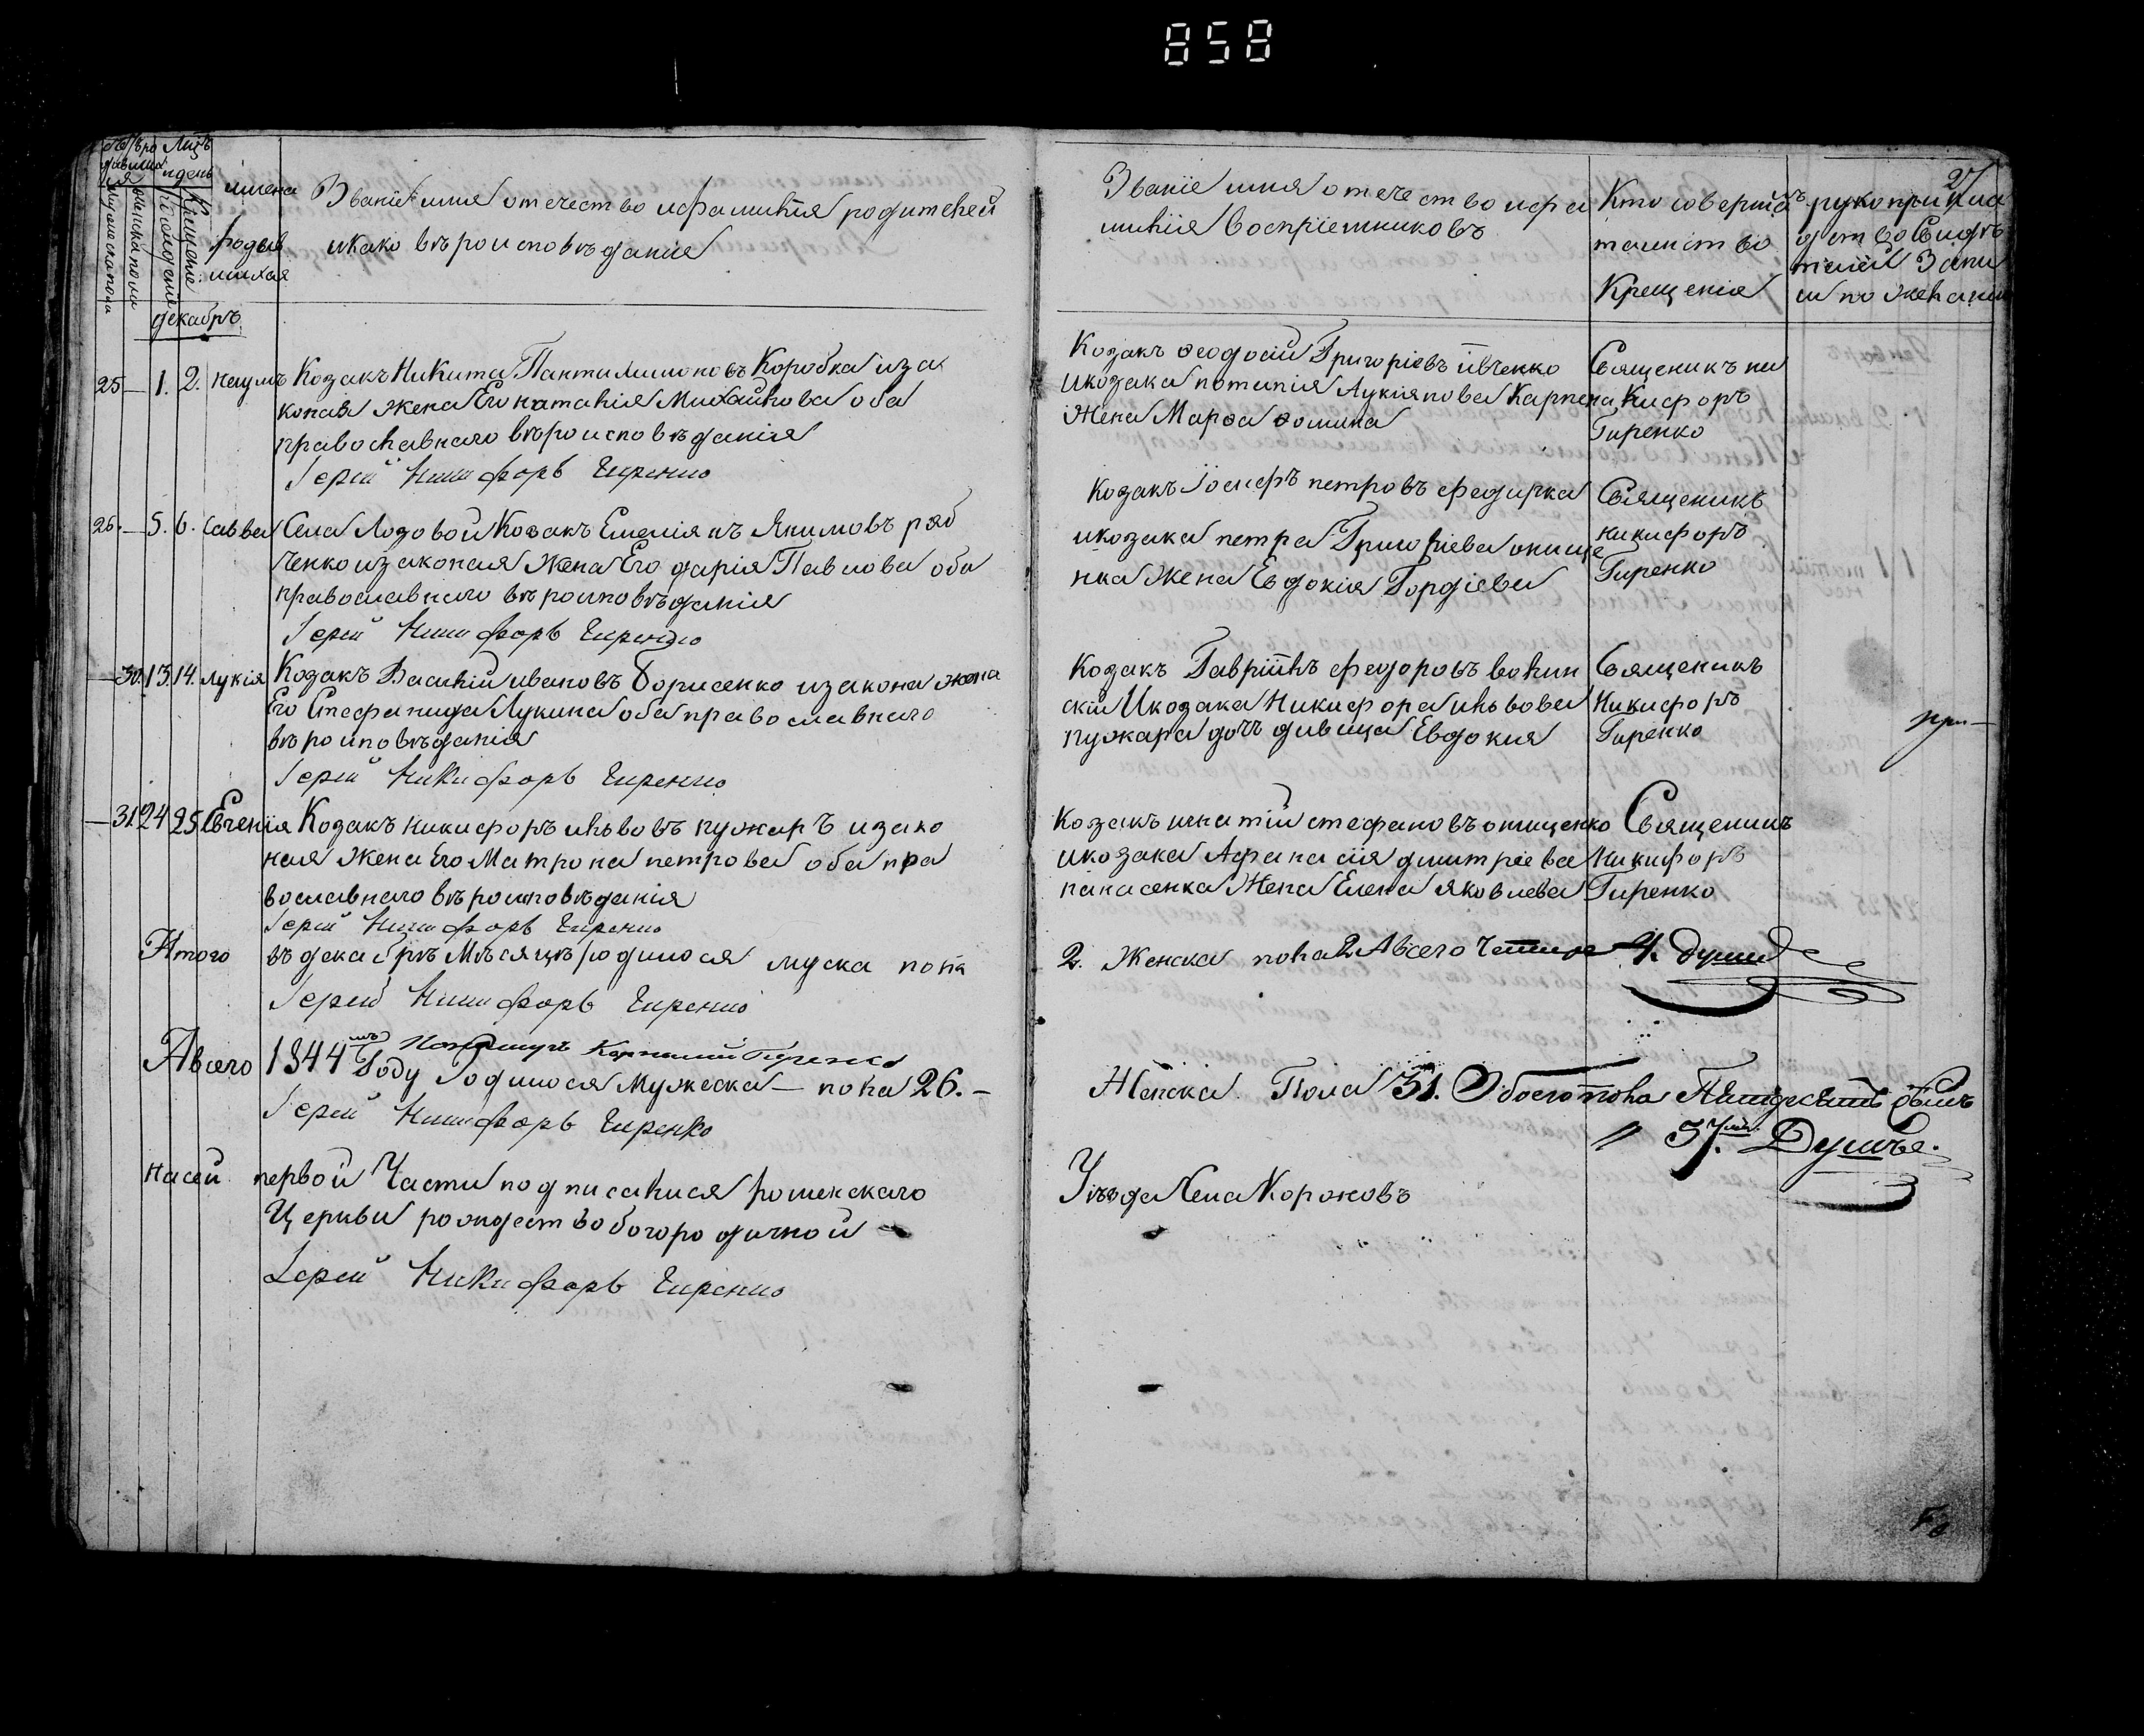 858
27
имена
родыв
шихся
Званіе имя отечество ифамилія родителей
икако вѣроисповѣданія
Званіе имя отечество ифа
милія Воспріемниковъ
Кто совершалъ
таинство
Крещенія
рукоприкла
дство Свидѣ
телей Запи
си по желанію
декабрь
25 — 1. 2. Наумъ
Козакъ Никита Пантилимоновъ Коробка иза
коная жена Его наталія Михайлова оба
православнаго вѣроисповѣданія
Іерей Никифоръ Гиренко
Козакъ ѳеодосій Григоріевъ ивченко
икозака потапія Лукіянова Карпенка
Жена Марѳа ѳомина
Священикъ ни
кифоръ
Гиренко
26. — 5. 6. Савва
Села Лозовой Козакъ Емеліянъ Якимовъ ряб
ченко изаконая жена Его дарія Павлова оба
православнаго вѣроисповѣданія
Іерей Никифоръ Гиренко
Козакъ Іосифъ петровъ федирка
икозака петра Григоріева онище
нка жена Евдокія Гордіева
Священикъ
никифоръ
Гиренко
— 30. 13. 14. Лукія
Козакъ Василій ивановъ борисенко изакона жена
Его Стефанида Лукина оба православнаго
вѣроисповѣданія
Іерей Никифоръ Гиренко
Козакъ Гавріилъ федоровъ волин
скій Икозака Никифора ильвова
пужара дочъ дивица Евдокия
Священикъ
Никифоръ
Гиренко
при—
— 31 24 25 Евгенія
Козакъ никифоръ ильвовъ пужаръ изако
ная жена Его Матрона петрова оба пра
вославнаго вѣроисповѣданія
Іерей Никифоръ Гиренко
Козакъ игнатій стефановъ онищенко
икозака Афанасія дмитріева
панасенка Жена Елена яковлева
Священикъ
Никифоръ
Гиренко
Итого въ декабрѣ Мѣсяцѣ родилося муска пола
2. Женска пола 2 Авсего Четыре 4. души
Іерей Никифоръ Гиренко
Пономарь Корнилій Гиренко
Авсего 1844мъ Году Родилося Мужеска — пола 26. —
Женска Пола 31. Обоего пола Пятдесятъ сѣмъ
57. Душъ.
Іерей Никифоръ Гиренко
насей первой Части подписалися роменскаго
Уѣзда Села Корововъ
Церкви рождествобогородичной
Іерей Никифоръ Гиренко